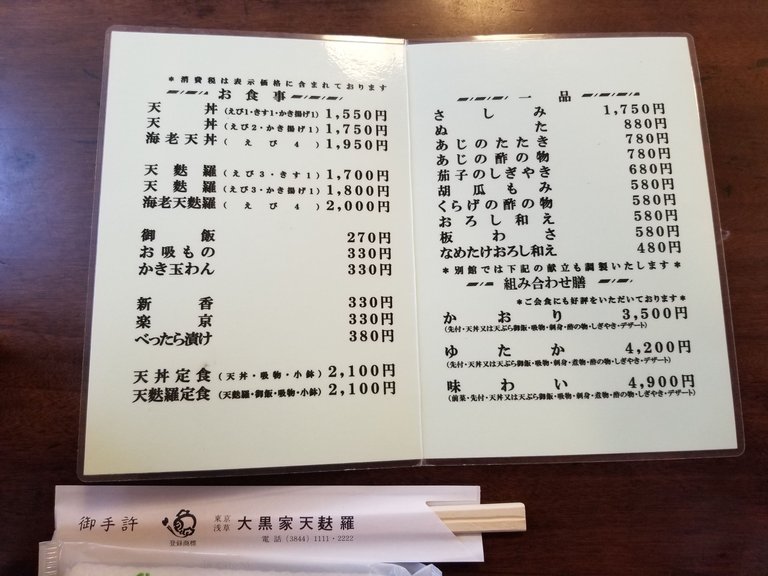 ＊消費税は表示価格に含まれております
お食事
天丼(えび1・きす1・かき揚げ1) 1,550円
天丼(えび2・かき揚げ1) 1,750円
海老天丼(えび4) 1,950円
天麩羅(えび3・きす1) 1,700円
天麩羅(えび3・かき揚げ1) 1,800円
海老天麩羅(えび4) 2,000円
御飯 270円
お吸もの 330円
かき玉わん 330円
新香 330円
楽京 330円
べったら漬け 380円
天丼定食(天丼・吸物・小鉢) 2,100円
天麩羅定食(天麩羅・御飯・吸物・小鉢) 2,100円
一品
さしみ 1,750円
ぬた 880円
あじのたたき 780円
あじの酢の物 780円
茄子のしぎやき 680円
胡瓜もみ 580円
くらげの酢の物 580円
おろし和え 580円
板わさ 580円
なめたけおろし和え 480円
＊別館では下記の献立も調製いたします＊
組み合わせ膳
＊ご会食にも好評をいただいております＊
かおり 3,500円
(先付・天丼又は天ぷら御飯・吸物・刺身・酢の物・しぎやき・デザート)
ゆたか 4,200円
(先付・天丼又は天ぷら御飯・吸物・刺身・煮物・酢の物・しぎやき・デザート)
味わい 4,900円
(前菜・先付・天丼又は天ぷら御飯・吸物・刺身・煮物・酢の物・しぎやき・デザート)
御手許
登録商標
東京浅草 大黒家天麩羅
電話(3844)1111・2222